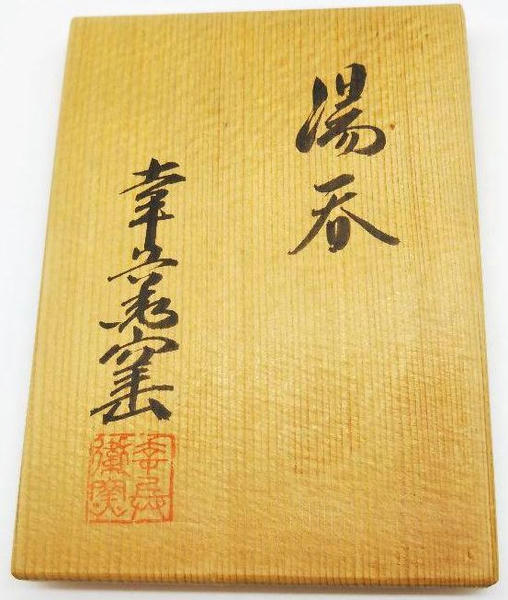 湯呑
幸兵衛窯
幸兵
衛窯